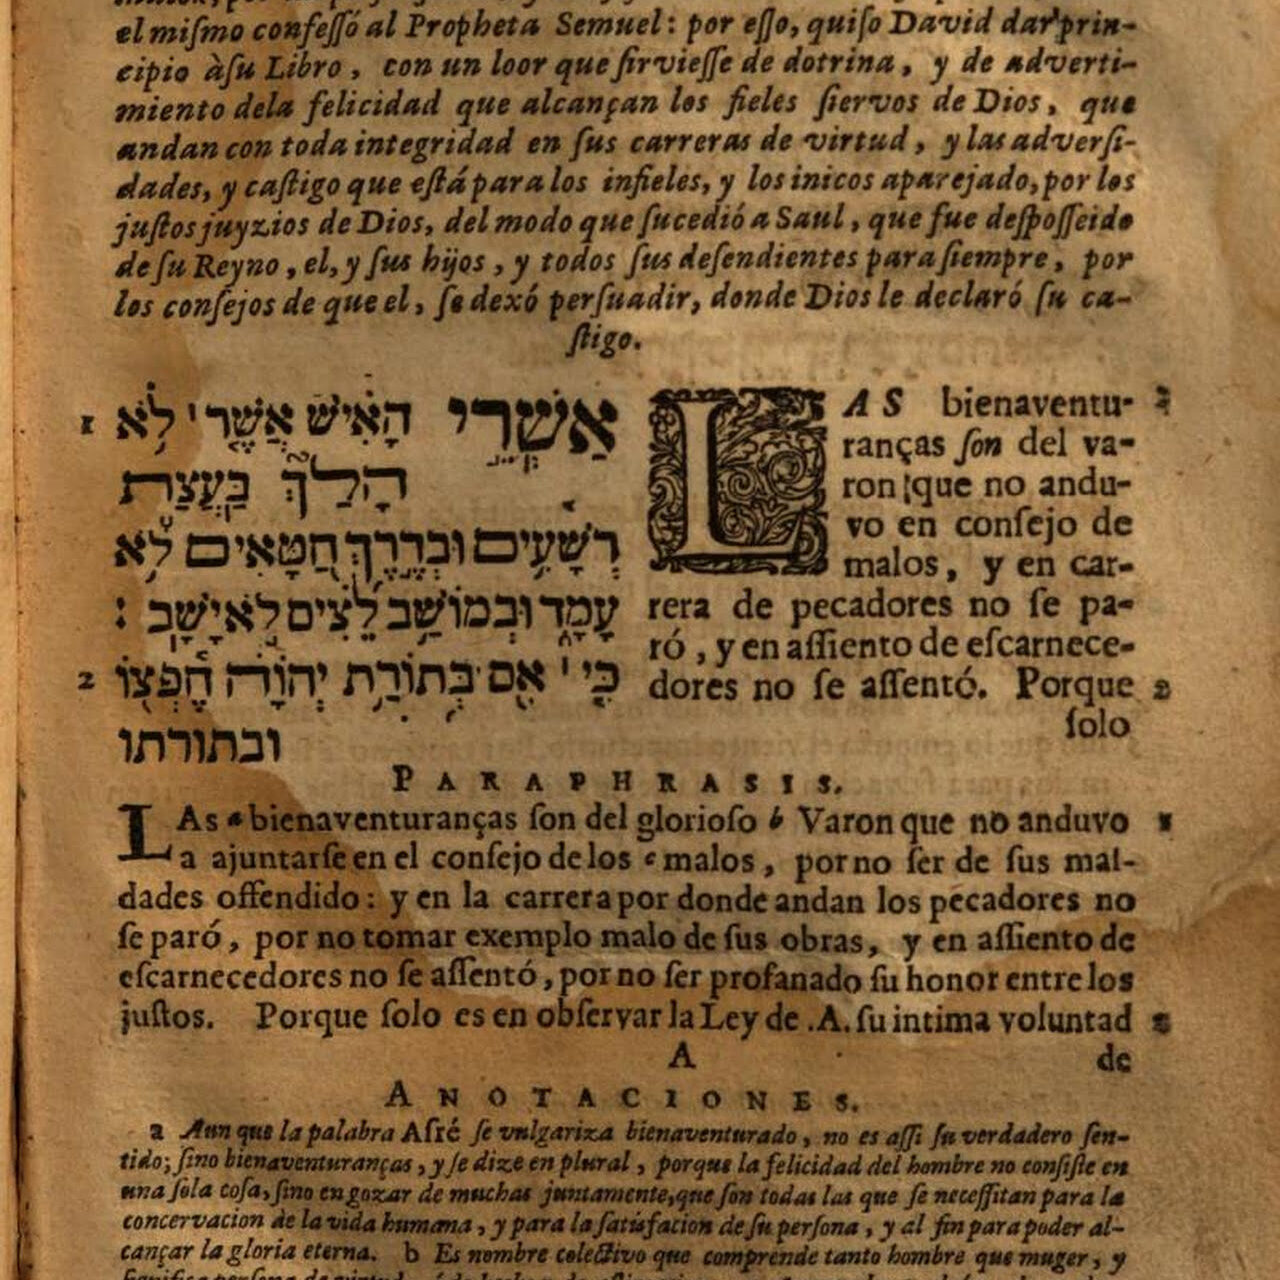 el miſmo confeſſó al Propheta Semuel: por eſſo, quiſo David dar prin-
cipio àſu Libro, con un loor que ſirvieſſe de dotrina, y de adverti-
miento dela felicidad que alcançan los fieles ſiervos de Dios, que
andan con toda integridad en ſus carreras de virtud, y las adverſi-
dades, y caſtigo que eſtá para los infieles, y los inicos aparejado, por los
juſtos juyzios de Dios, del modo que ſucedió a Saul, que fue deſpoſſeido
de ſu Reyno, el, y ſus hijos, y todos ſus deſendientes para ſiempre, por
los conſejos de que el, ſe dexó perſuadir, donde Dios le declaró ſu ca-
ſtigo.
1 אַשְׁרֵי הָאִישׁ אֲשֶׁר ׀ לֹא
הָלַךְ בַּעֲצַת
רְשָׁעִים וּבְדֶרֶךְ חַטָּאִים לֹא
עָמָד וּבְמוֹשַׁב לֵצִים לֹא יָשָׁב :
2 כִּי ׀ אִם בְּתוֹרַת יְהוָֹה חֶפְצוֹ
ובתורתו
LAS bienaventu-
ranças ſon del va-
ron que no andu-
vo en conſejo de
malos, y en car-
rera de pecadores no ſe pa-
ró, y en aſſiento de eſcarnece-
dores no ſe aſſentó. Porque 2
ſolo
PARAPHRASIS.
LAs a bienaventuranças ſon del glorioſo b Varon que no anduvo 1
a ajuntarſe en el conſejo de los c malos, por no ſer de ſus mal-
dades offendido: y en la carrera por donde andan los pecadores no
ſe paró, por no tomar exemplo malo de ſus obras, y en aſſiento de
eſcarnecedores no ſe aſſentó, por no ſer profanado ſu honor entre los
juſtos. Porque ſolo es en obſervar la Ley de .A. ſu intima voluntad 2
A de
ANOTACIONES.
a Aun que la palabra Aſré ſe vulgariza bienaventurado, no es aſſi ſu verdadero ſen-
tido; ſino bienaventuranças, y ſe dize en plural, porque la felicidad del hombre no conſiſte en
una ſola coſa, ſino en gozar de muchas juntamente, que ſon todas las que ſe neceſſitan para la
concervacion de la vida humana, y para la ſatisfacion de ſu perſona, y al fin para poder al-
cançar la gloria eterna. b Es nombre colectivo que comprende tanto hombre que muger, y